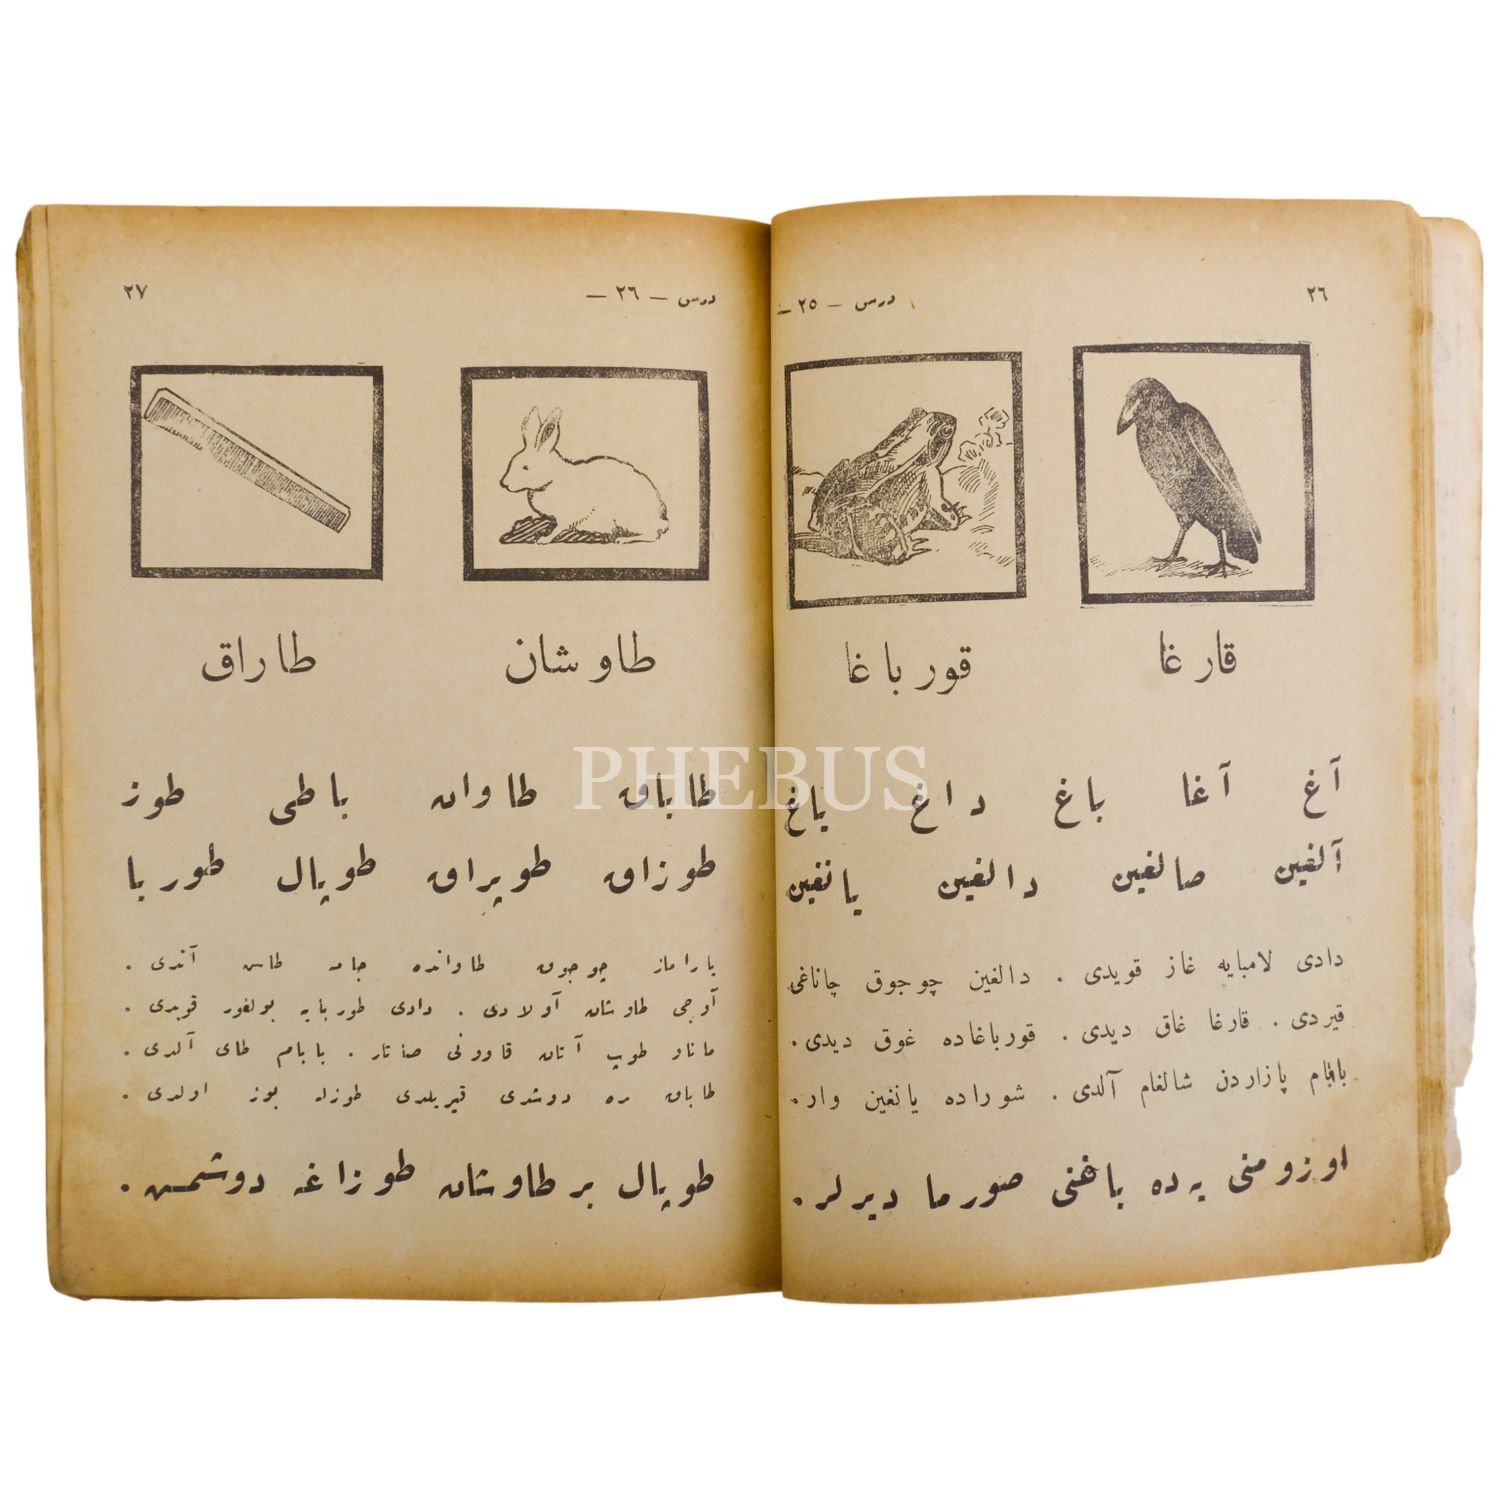 ٢٦
درس — ٢٥ —
قارغا قورباغا
آغ آغا باغ داغ ياغ
آلغين صالغين دالغين يانغين
دادى لامبايه غاز قويدى . دالغين چوجوق چاناغى
قيردى . قارغا غاق ديدى . قورباغاده غوق ديدى .
بابام پازاردن شالغام آلدى . شوراده يانغين وار .
اوزومنى يه ده باغنى صورما ديرلر .
٢٧
درس — ٢٦ —
طاوشان طاراق
طاباق طاوان باطى طوز
طوزاق طوپراق طوپال طوربا
ياراماز چوجوق طاوانده جامه طاس آتدى .
آوجى طاوشان آولادى . دادى طوربايه بولغور قويدى .
ماناو طوپ آتان قاوونى صاتار . بابام طاى آلدى .
طاباق يره دوشدى قيريلدى طوزله بوز اولدى .
طوپال بر طاوشان طوزاغه دوشمش .
PHEBUS